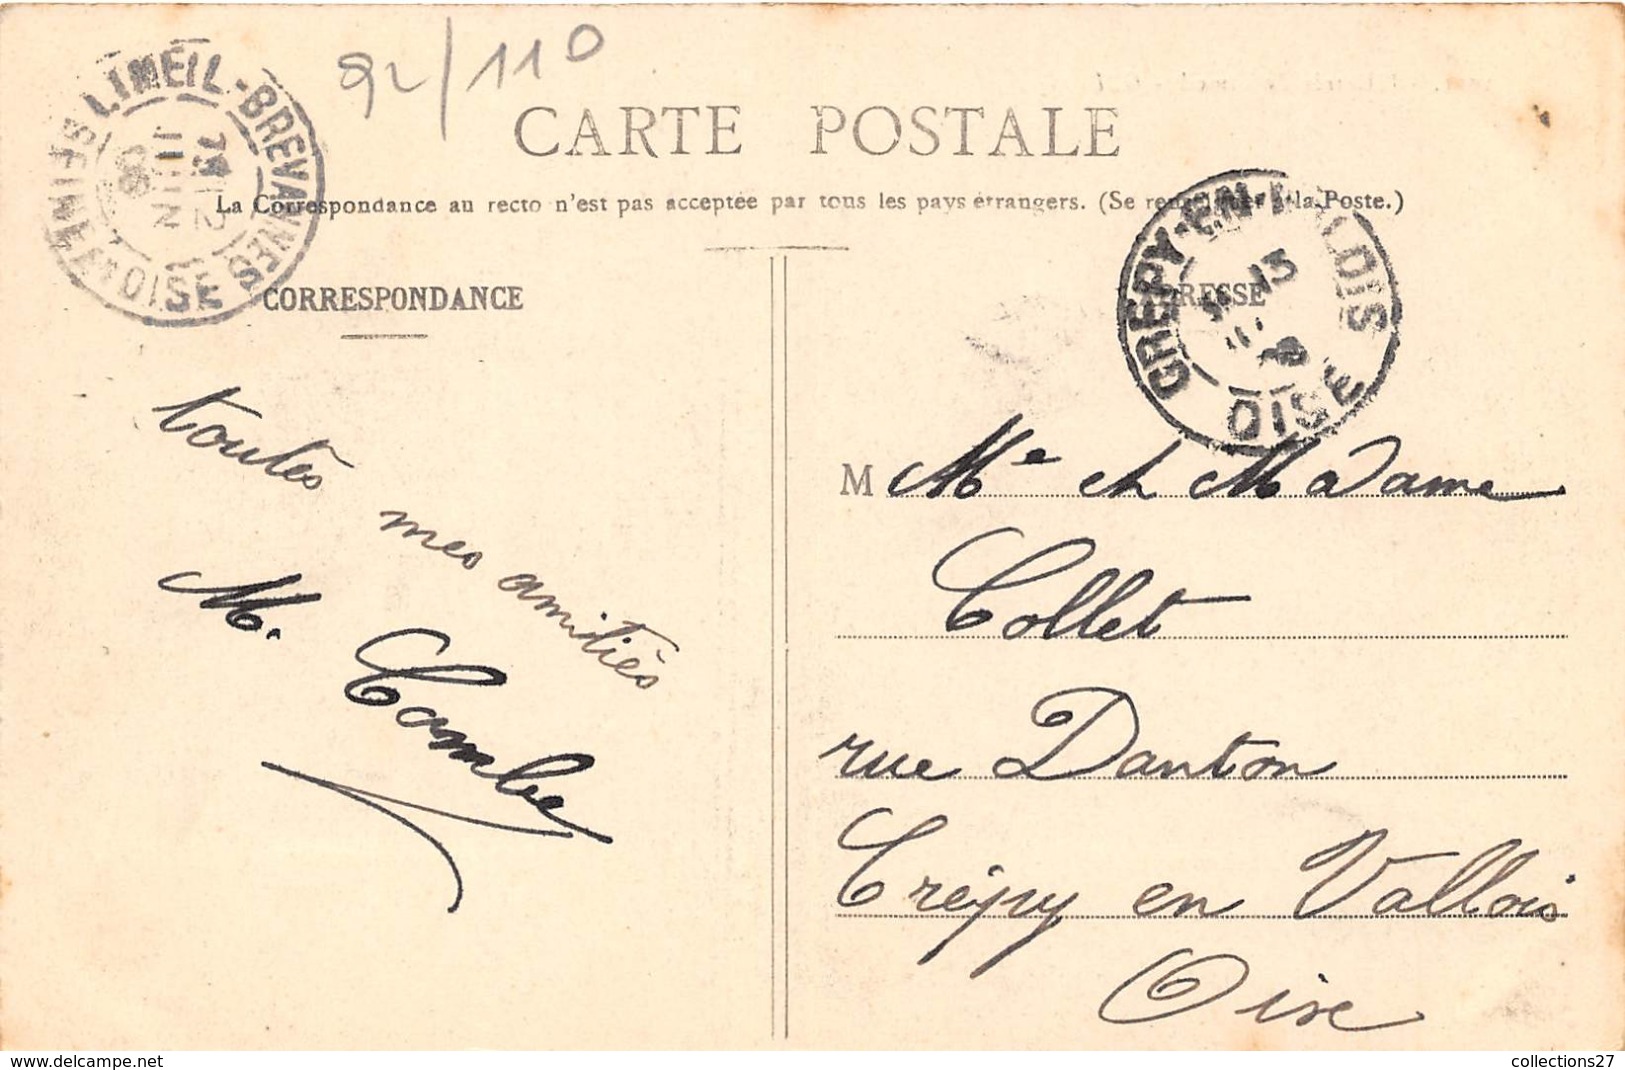 92/110
CARTE POSTALE
La Correspondance au recto n'est pas acceptée par tous les pays étrangers. (Se renseigner à la Poste.)
LIMEIL-BREVANNES
SEINE-ET-OISE
JUIN
08
CORRESPONDANCE
toutes
mes amitiés
M. Combe
CRÉPY-EN-VALOIS
OISE
13
ADRESSE
M Mr et Madame
Collet
rue Danton
Crépy en Vallois
Oise
www.delcampe.net
collections27